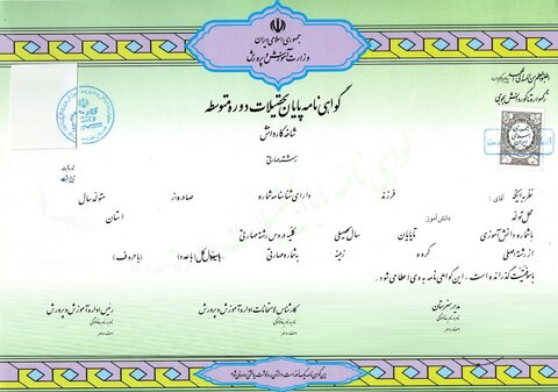 جمهوری اسلامی ایران
وزارت آموزش و پرورش
گواهی نامه پایان تحصیلات دوره متوسطه
شاخه کاردانش
رشته مهارتی
نظر به اینکه آقای : فرزند دارای شناسنامه شماره صادره از متولد سال
محل تولد دانش آموز استان
با شماره دانش آموزی تا پایان سال تحصیلی کلیه دروس رشته مهارتی
از رشته اصلی گروه زمینه به شماره مهارتی با میانگین کل (با عدد) (با حروف)
با موفقیت گذرانده است ، این گواهی نامه به وی اعطا می شود .
مدیر هنرستان کارشناس امتحانات اداره آموزش و پرورش رئیس اداره آموزش و پرورش